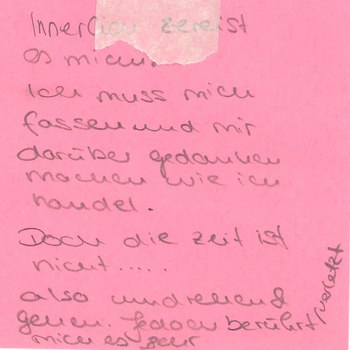 Innerlich zereist
es mich.
Ich muss mich
fassen und mir
darüber gedanken
machen wie ich
handel.
Doch die zeit ist
nicht.....
also umdrehen &
gehen. Jedoch berührt/verletzt
mich es sehr